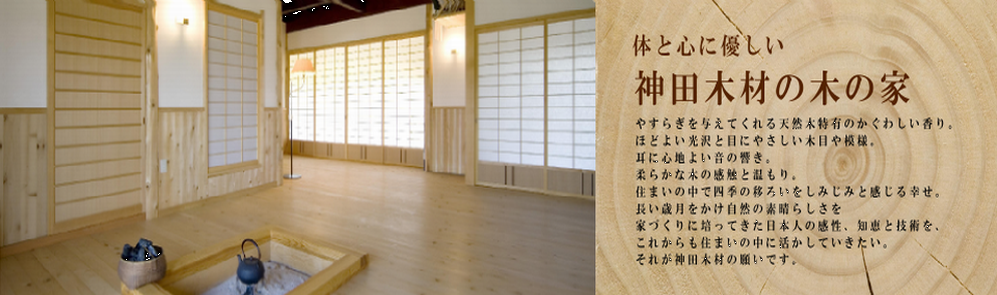 体と心に優しい
神田木材の木の家
やすらぎを与えてくれる天然木特有のかぐわしい香り。
ほどよい光沢と目にやさしい木目や模様。
耳に心地よい音の響き。
柔らかな木の感触と温もり。
住まいの中で四季の移ろいをしみじみと感じる幸せ。
長い歳月をかけ自然の素晴らしさを
家づくりに培ってきた日本人の感性、知恵と技術を、
これからも住まいの中に活かしていきたい。
それが神田木材の願いです。